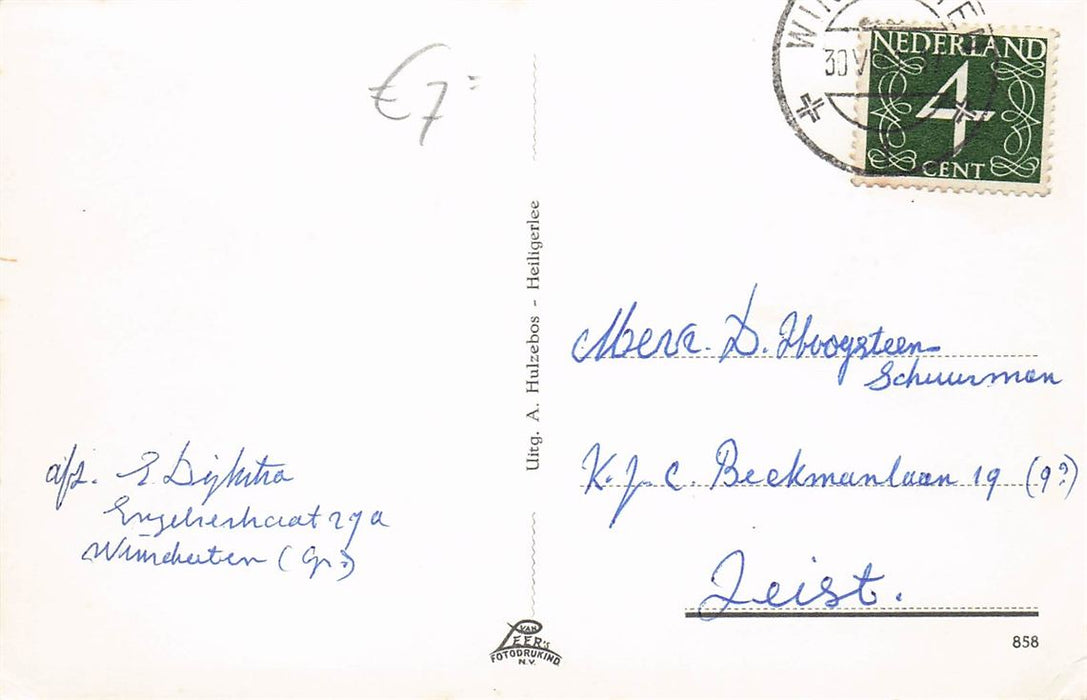 € 7=
NEDERLAND
4
CENT
Uitg. A. Hulzebos - Heiligerlee
Mevr. D. Hoogsteen-
Schuurman
K. J. C. Beekmanlaan 19 (9?)
Zeist.
afz. E Dijkstra
Engelsestraat 29a
Winschoten (Gr.)
VAN
LEER's
FOTODRUKIND.
N.V.
858